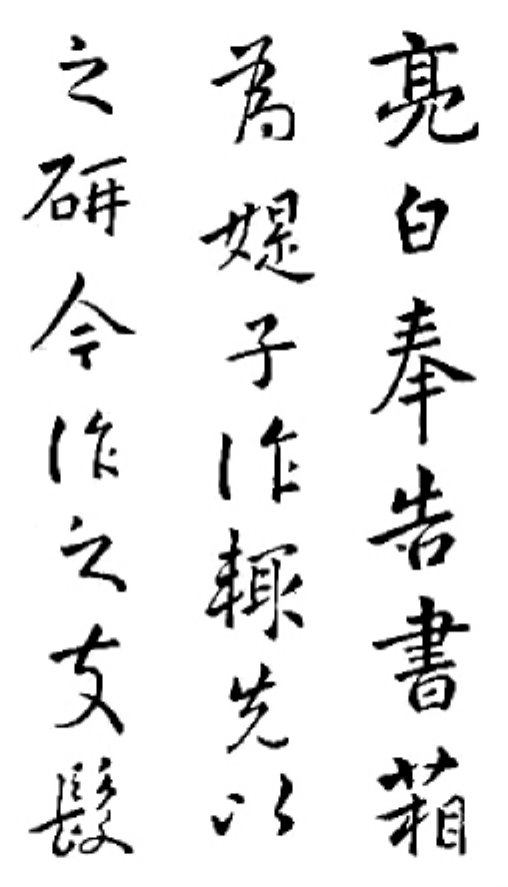 亮白奉告書箱
為媞子作輙先以
之研今作之支髮